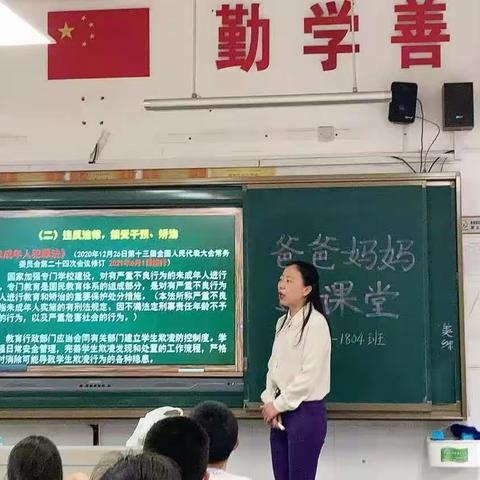 勤学善
(二) 违反法律，接受干预、矫治
成年人犯罪法》（2020年12月26日第十三届全国人民代表大会常务
委员会第二十四次会议修订 2021年6月1日起施行）
国家加强专门学校建设，对有严重不良行为的未成年人进行
专门教育是国民教育体系的组成部分，是对有严重不良行为的
人进行教育和矫治的重要保护处分措施，（本法所称严重不良
指未成年人实施的有刑法规定、因不满法定刑事责任年龄不予
的行为，以及严重危害社会的行为。）
教育行政部门应当会同有关部门建立学生欺凌防控制度，学
强日常安全管理，完善学生欺凌发现和处置的工作流程，严格
时消除可能导致学生欺凌行为的各种隐患。
爸爸妈妈
课堂
-1804班
美术